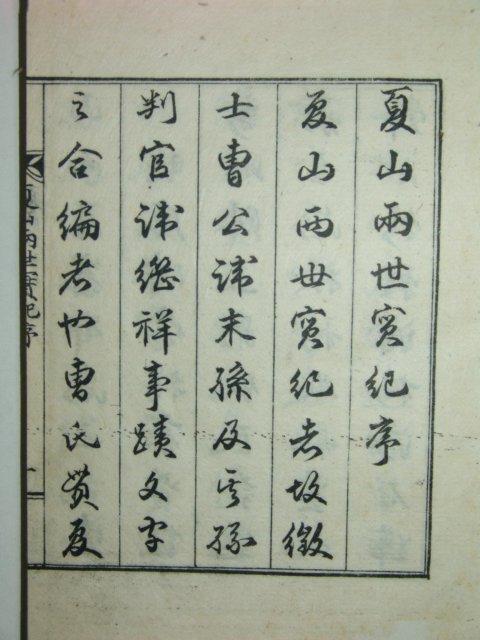 夏山兩世實紀序
夏山兩世實紀者故徵
士曺公諱末孫及其孫
判官諱繼祥事蹟文字
之合編者也曺氏貫夏
夏山兩世實紀序